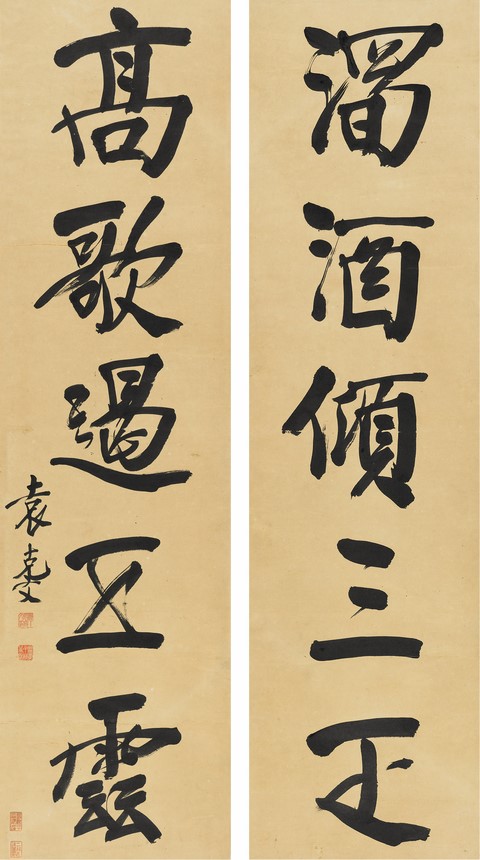 濁酒傾三疋
高歌遏五雲
袁克文